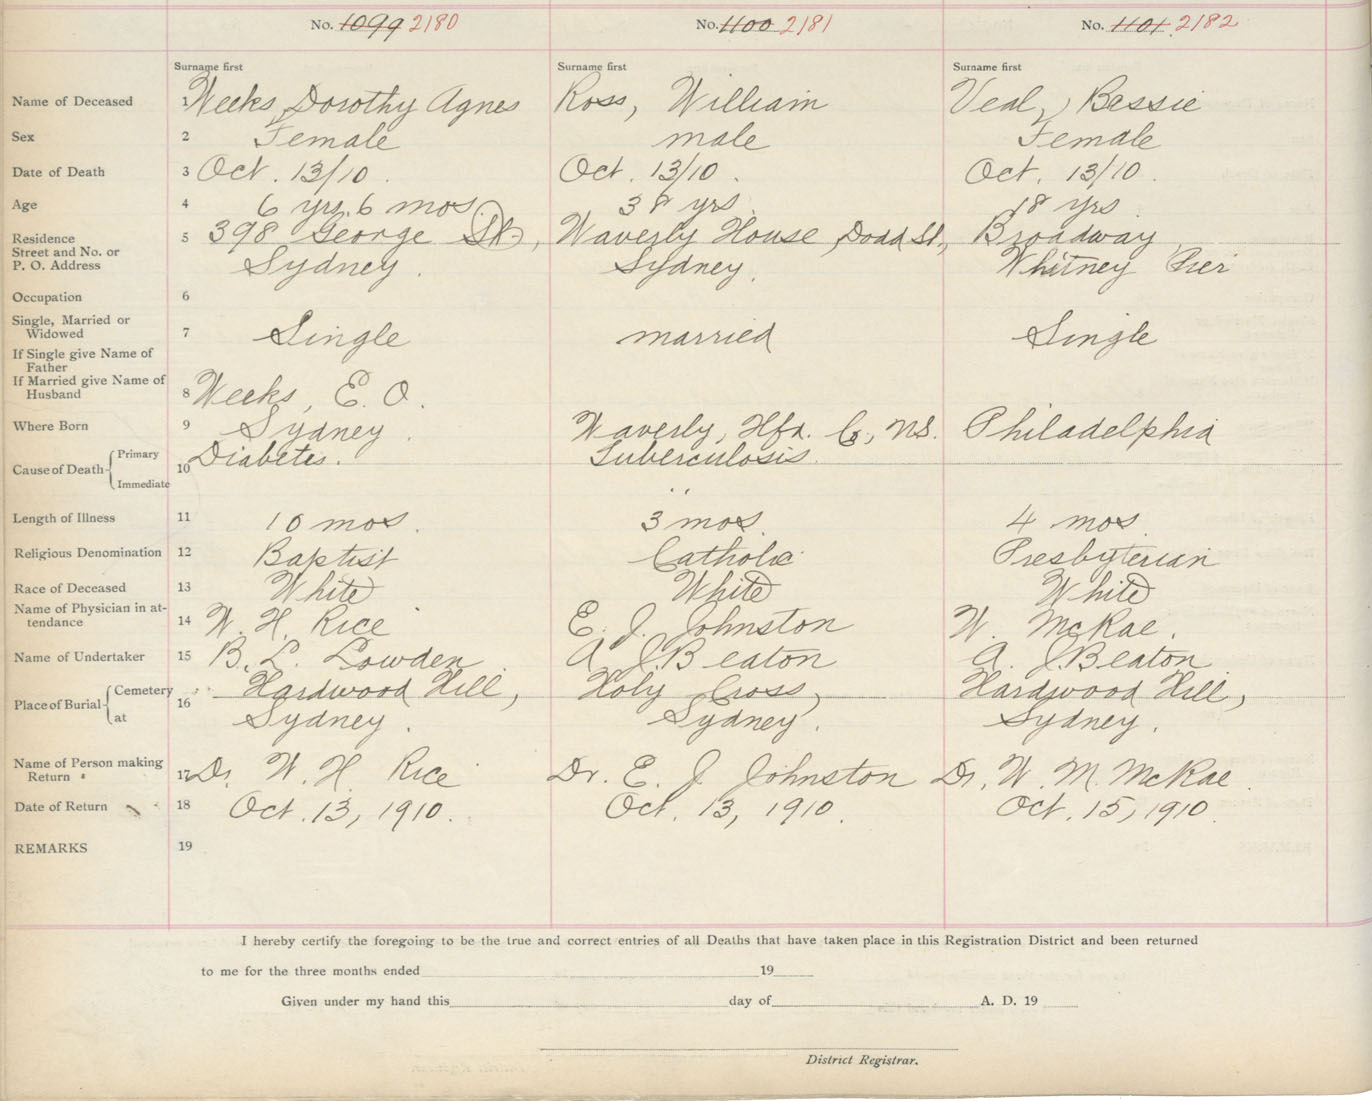 No. 1099 2180 No. 1100 2181 No. 1101 2182
Surname first Surname first Surname first
Name of Deceased 1 Weeks, Dorothy Agnes Ross, William Veal, Bessie
Sex 2 Female male Female
Date of Death 3 Oct. 13/10. Oct. 13/10. Oct. 13/10.
Age 4 6 yrs. 6 mos. 38 yrs. 18 yrs.
Residence 5 398 George St., Waverly House, Dodd St., Broadway,
Street and No. or
P. O. Address Sydney. Sydney. Whitney Pier
Occupation 6
Single, Married or
Widowed 7 Single married Single
If Single give Name of
Father
If Married give Name of
Husband 8 Weeks, E. O.
Where Born 9 Sydney. Waverly, Hfx. Co., N.S. Philadelphia
Cause of Death Primary 10 Diabetes. Tuberculosis.
Immediate "
Length of Illness 11 10 mos. 3 mos. 4 mos.
Religious Denomination 12 Baptist Catholic Presbyterian
Race of Deceased 13 White White White
Name of Physician in at-
tendance 14 W. H. Rice E. J. Johnston W. McRae.
Name of Undertaker 15 B. L. Lowden. A. J. Beaton A. J. Beaton
Place of Burial Cemetery 16 Hardwood Hill, Holy Cross, Hardwood Hill,
at Sydney. Sydney. Sydney.
Name of Person making
Return 17 Dr. W. H. Rice Dr. E. J. Johnston Dr. W. M. McRae.
Date of Return 18 Oct. 13, 1910. Oct. 13, 1910. Oct. 15, 1910.
REMARKS 19
I hereby certify the foregoing to be the true and correct entries of all Deaths that have taken place in this Registration District and been returned
to me for the three months ended 19
Given under my hand this day of A. D. 19
District Registrar.